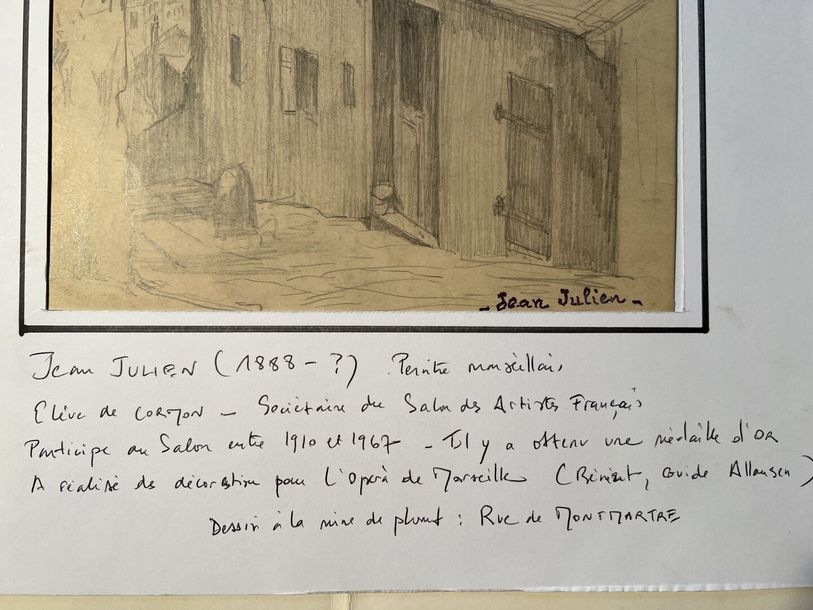 - Jean Julien -
Jean JULIEN (1888 - ?) Peintre marseillais
Elève de CORMON - Sociétaire du Salon des Artistes Français
Participe au Salon entre 1910 et 1967 - Il y a obtenu une médaille d'OR
A réalisé des décoration pour l'Opéra de Marseille (Bénézit, Guide Allousen)
Dessin à la mine de plomb : Rue de MONTMARTRE